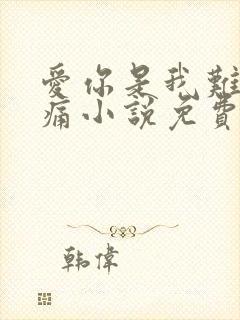 愛你是我難
痛小說免費
韩偉